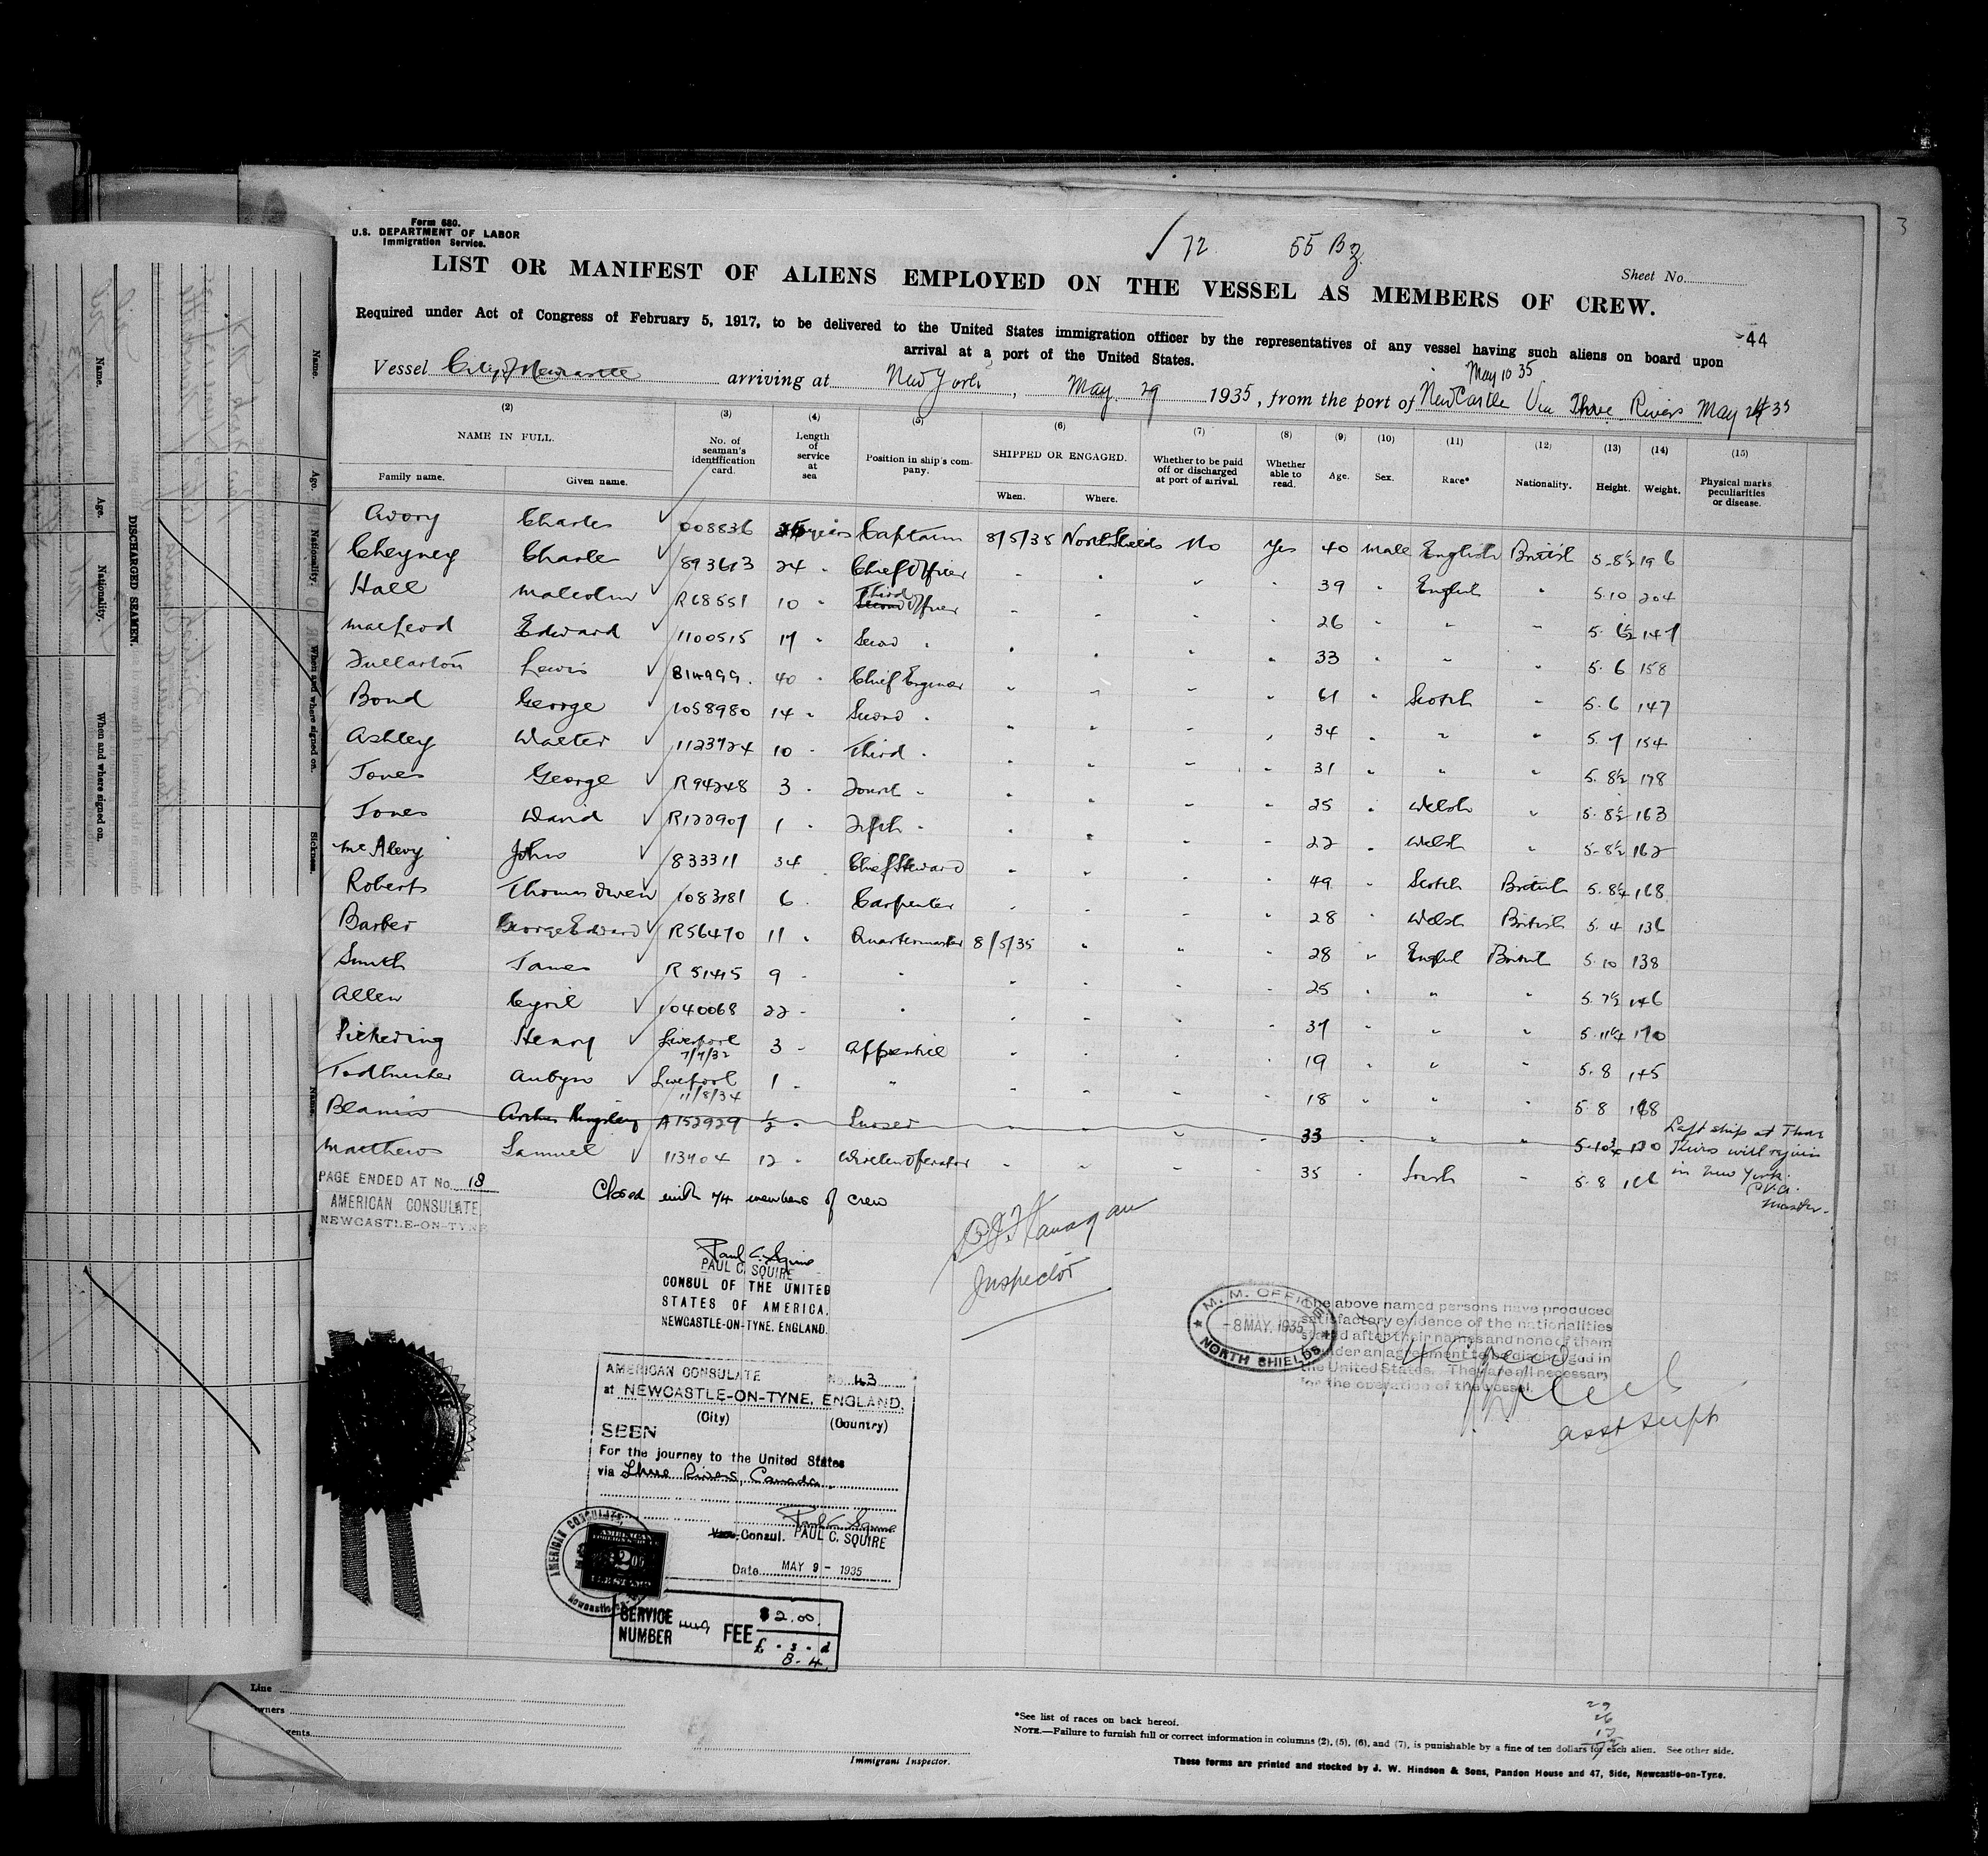 Form 680.
U.S. DEPARTMENT OF LABOR
Immigration Service.
72 55 Bz.
3
Sheet No.
LIST OR MANIFEST OF ALIENS EMPLOYED ON THE VESSEL AS MEMBERS OF CREW.
44
Required under Act of Congress of February 5, 1917, to be delivered to the United States immigration officer by the representatives of any vessel having such aliens on board upon
arrival at a port of the United States.
May 10 35
Vessel City of Newcastle arriving at New York, May 29 1935, from the port of NewCastle Via Three Rivers May 24 35
(2) (3) (4) (5) (6) (7) (8) (9) (10) (11) (12) (13) (14) (15)
NAME IN FULL. No. of seaman's identification card. Length of service at sea Position in ship's company. SHIPPED OR ENGAGED. Whether to be paid off or discharged at port of arrival. Whether able to read. Age. Sex. Race* Nationality. Height. Weight. Physical marks, peculiarities or disease.
Family name. Given name. When. Where.
Avory Charles 008836 years Captain 8/5/35 North Shields No Yes 40 Male English British 5-8½ 196
Cheyney Charles 893613 24 " Chief Officer " " " " 39 " English " 5.10 204
Hall Malcolm R68551 10 " Third Second Officer " " " " 26 " " " 5. 6½ 147
MacLeod Edward 1100515 17 " Second " " " " " 33 " " " 5. 6 158
Fullarton Lewis 814999. 40 " Chief Engineer " " " " 61 " Scotch " 5. 6 147
Bond George 1058980 14 " Second " " " " " 34 " " " 5. 7 154
Ashley Walter 1123724 10 " Third " " " " " 31 " " " 5. 8½ 178
Jones George R94248 3 " Fourth " " " " " 25 " Welsh " 5. 8½ 163
Jones David R122907 1 " Fifth " " " " " 22 " Welsh " 5-8½ 162
McAlevy John 833311 34 Chief Steward " " " " 49 " Scotch British 5. 8¼ 168
Roberts Thomas Owen 1083181 6 Carpenter " " " " 28 " Welsh British 5. 4 136
Barber George Edward R56470 11 " Quartermaster 8/5/35 " " " 28 " English British 5.10 138
Smith James R 51415 9 " " " " " " 25 " " " 5. 7½ 146
Allen Cyril 1040068 22 " " " " " " 37 " " " 5. 11¼ 170
Pickering Henry Liverpool 7/7/32 3 " Apprentice " " " " 19 " " " 5. 8 145
Aubyn Liverpool 11/8/34 1 " " " " " " 18 " " " 5 8 168
Kingsley A152929 ½ " " " " " 33 " " " 5-10¾ 170
Left ship at Three
Rivers will rejoin
in New York.
C.V.A.
Master.
Matthews Samuel 113404 12 " Wireless Operator " " " " 35 " Irish " 5. 8 166
PAGE ENDED AT No. 18
AMERICAN CONSULATE
NEWCASTLE-ON-TYNE
Closed with 74 members of crew
Flanagan
Inspector
Paul C. Squire
PAUL C. SQUIRE
CONSUL OF THE UNITED
STATES OF AMERICA.
NEWCASTLE-ON-TYNE. ENGLAND.
M. M. OFFICE
-8 MAY. 1935
NORTH SHIELDS
The above named persons have produced
satisfactory evidence of the nationalities
stated after their names and none of them
under an agreement to be discharged in
the United States. They are all necessary
for the operation of the vessel.
Asst Supt
AMERICAN CONSULATE No. 43
at NEWCASTLE-ON-TYNE. ENGLAND.
(City) (Country)
SEEN
For the journey to the United States
via Three Rivers, Canada.
Paul C. Squire
Vice Consul. PAUL C. SQUIRE
Date MAY 9 - 1935
AMERICAN CONSULATE
Newcastle
AMERICAN
2
SERVICE NUMBER FEE $2.00
£ - s - d
8 - 4
Line
Owners
Agents
Immigrant Inspector.
29
26
17
72
*See list of races on back hereof.
NOTE.—Failure to furnish full or correct information in columns (2), (5), (6), and (7), is punishable by a fine of ten dollars for each alien. See other side.
These forms are printed and stocked by J. W. Hindson & Sons, Pandon House and 47, Side, Newcastle-on-Tyne.
DISCHARGED SEAMEN.
Name. Age. Nationality. When and where signed on.
Name. Age. Nationality. When and where signed on. Sickness.
Name.